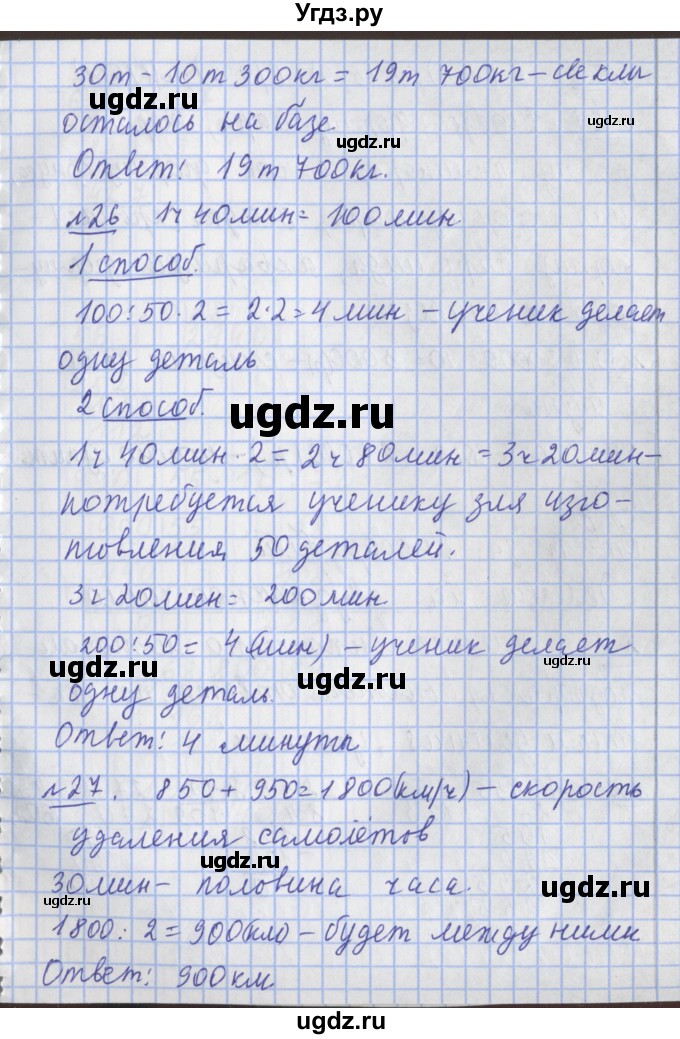 Угдз.ру
30т - 10т 300кг = 19т 700кг - свеклы
ugdz.ru ugdz.ru
осталось на базе
ugdz.ru
Ответ: 19т 700кг.
№26 1ч 40мин = 100мин
1 способ.
100:50·2=2·2=4мин - ученик делает
одну деталь
2 способ.
ugdz.ru
1ч 40мин·2=2ч 80мин=3ч20мин-
потребуется ученику для изго-
товления 50 деталей.
3ч 20мин= 200мин.
200:50= 4(мин) - ученик делает
ugdz.ru ugdz.ru ugdz.ru
одну деталь.
Ответ: 4 минуты
№27. 850+950=1800(км/ч) - скорость
удаления самолётов
ugdz.ru
30мин - половина часа.
ugdz.ru ugdz.ru
1800:2=900(км) - будет между ними
Ответ: 900км
ugdz.ru
ugdz.ru